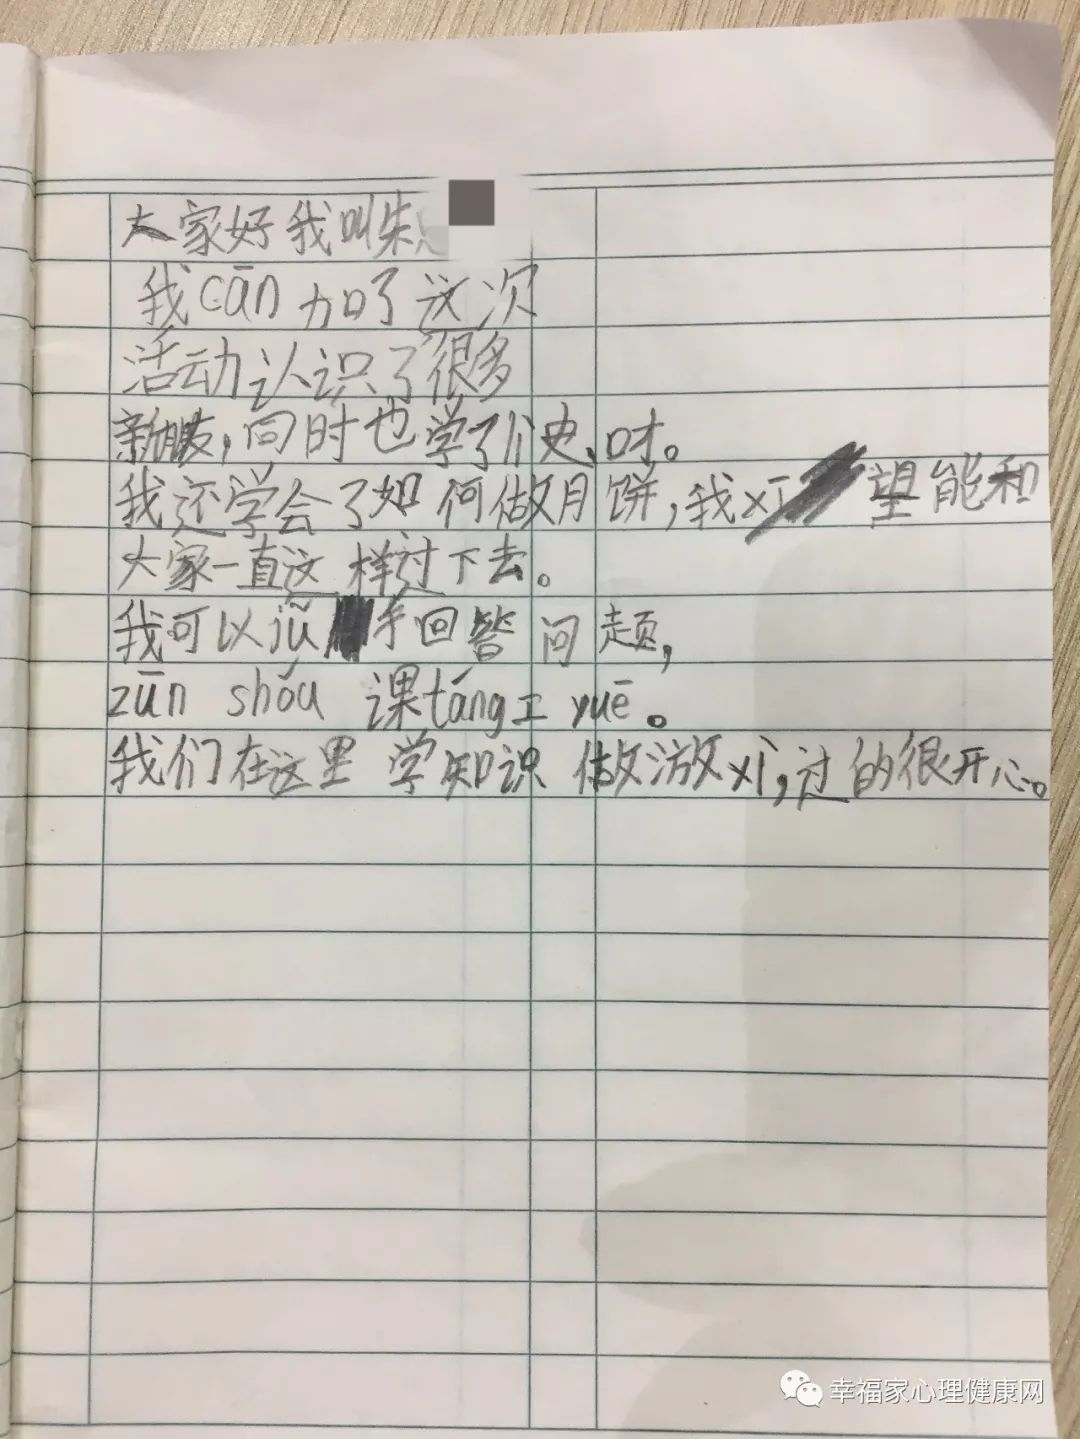 大家好我叫朱
我cān加了这次
活动认识了很多
新朋友,同时也学了价史、口才。
我还学会了如何做月饼,我xī望能和
大家一直这样过下去。
我可以jǔ手回答问题,
zūn shóu 课táng工 yuē。
我们在这里学知识做游xì,过的很开心。
幸福家心理健康网